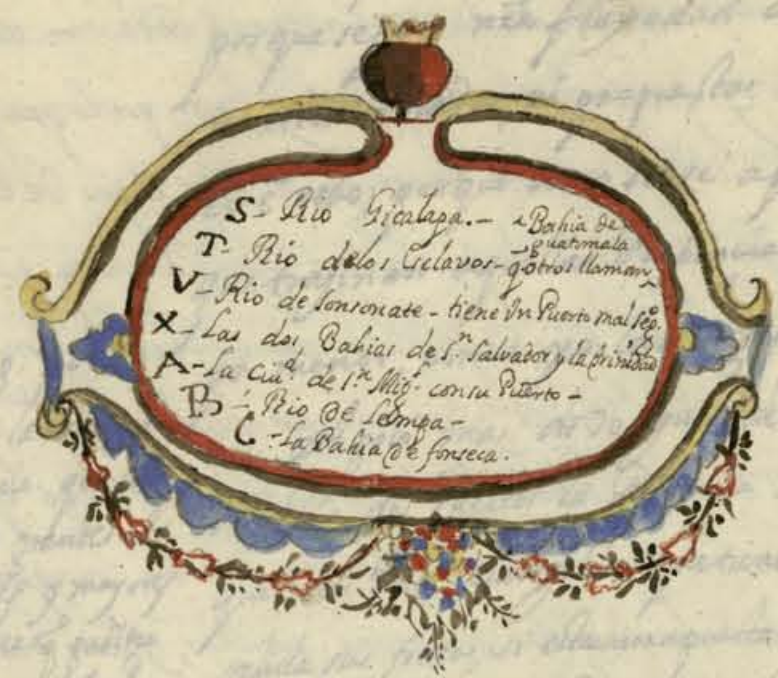 S - Rio Gicalapa. - Bahia de
guatimala
T - Rio delos Esclavos - q̃ otros llaman
V - Rio de Sonsonate - tiene Vn Puerto mal seg.º
X - Las dos Bahias de S.n Salvador y la trinidad
A - La Ciu.d de S.n Mig.l consu Puerto -
B - Rio de Lempa -
C - La Bahia de fonseca.